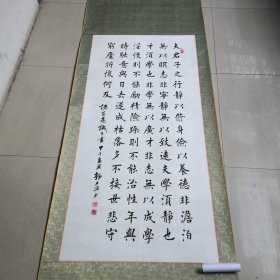 夫君子之行靜以修身儉以養德非澹泊
無以明志非寧靜無以致遠夫學須靜也
才須學也非學無以廣才非志無以成學
淫慢則不能勵精險躁則不能治性年與
時馳意與日去遂成枯落多不接世悲守
窮廬將復何及 諸葛亮誡子書